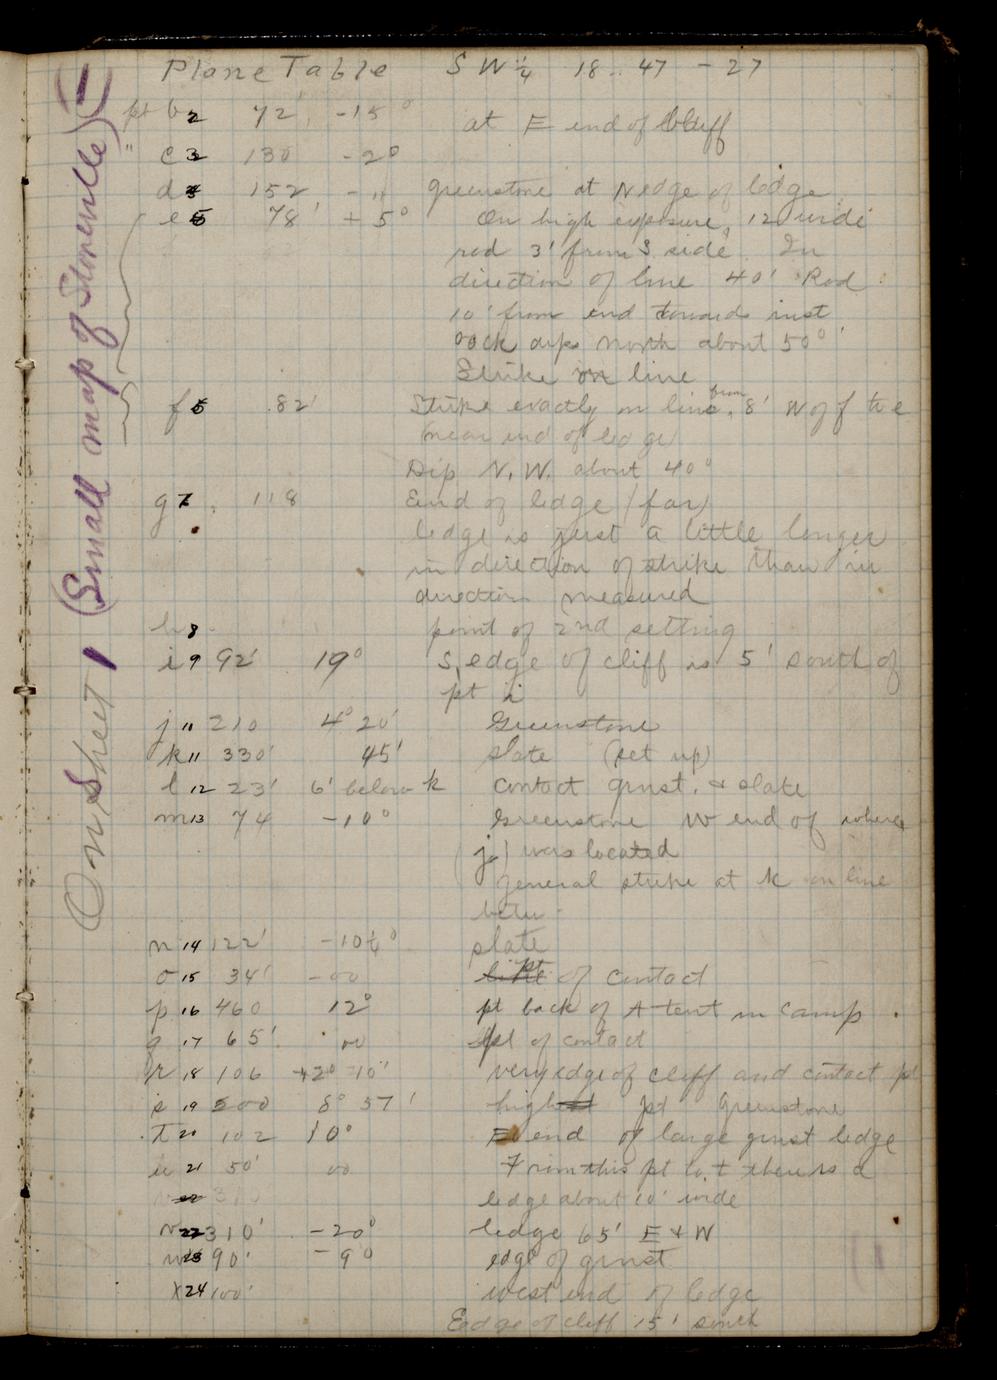 Plane Table SW 1/4 18 .. 47 - 27
pt b 2 72' -15° at E end of Cliff
" c 3 130 -2°
d 4 152 - " greenstone at N edge of ledge
e 5 78' + 5° On high exposure, 12 wide
rod 3' from S side In
direction of line 40' Rod
10' from end towards inst
rock dips north about 50°
Strike on line
f 6 82' Strike exactly on line, from 8' W of f to e
near end of ledge
Dip N.W. about 40°
g 7 118 End of ledge (far)
ledge is just a little longer
in direction of strike than in
direction measured
h 8 point of 2nd setting
i 9 92' 19° S. edge of cliff is 5' south of
pt i
j 11 210 4° 20' Greenstone
k 11 330' 45' slate (set up)
l 12 23' 6' below k contact grnst. & slate
m 13 74 -10° Greenstone W end of where
(j) was located
General strike at k on line
betw -
n 14 122' -10½° slate
o 15 34' -00 pt of contact
p 16 460 12° pt back of A tent in camp
q 17 65' 00 pt of contact
r 18 106 +2° 10' very edge of cliff and contact pt
s 19 500 8° 37' high pt Greenstone
t 20 102 10° E end of large grnst ledge
u 21 50' 00 From this pt to t there is a
ledge about 10' wide
v 22 310' -20° ledge 65' E & W
w 23 90' -9° edge of grnst
x 24 100' west end of ledge
Edge of cliff 15' south
On Sheet 1 (Small map of Stoneville)